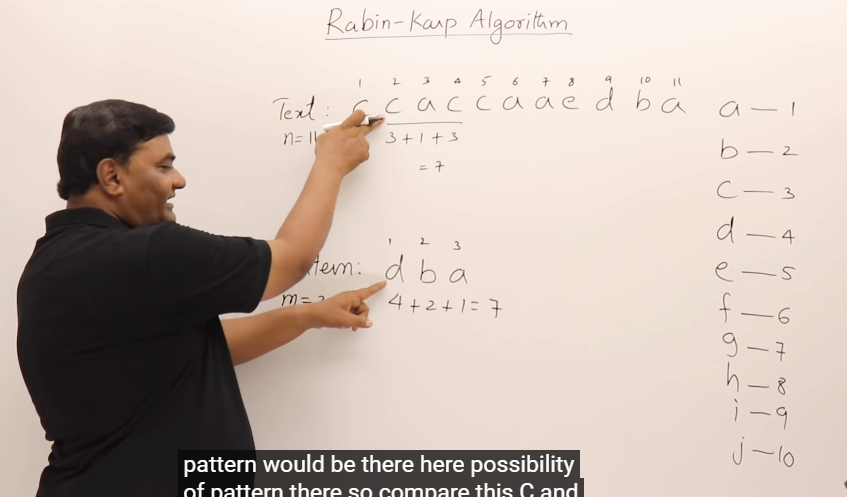 Rabin-Karp Algorithm
1 2 3 4 5 6 7 8 9 10 11
Text: c c a c c a a e d b a
n=11
3+1+3
=7
1 2 3
tern: d b a
m=3
4+2+1=7
a—1
b—2
c—3
d—4
e—5
f—6
g—7
h—8
i—9
j—10
pattern would be there here possibility
of pattern there so compare this C and